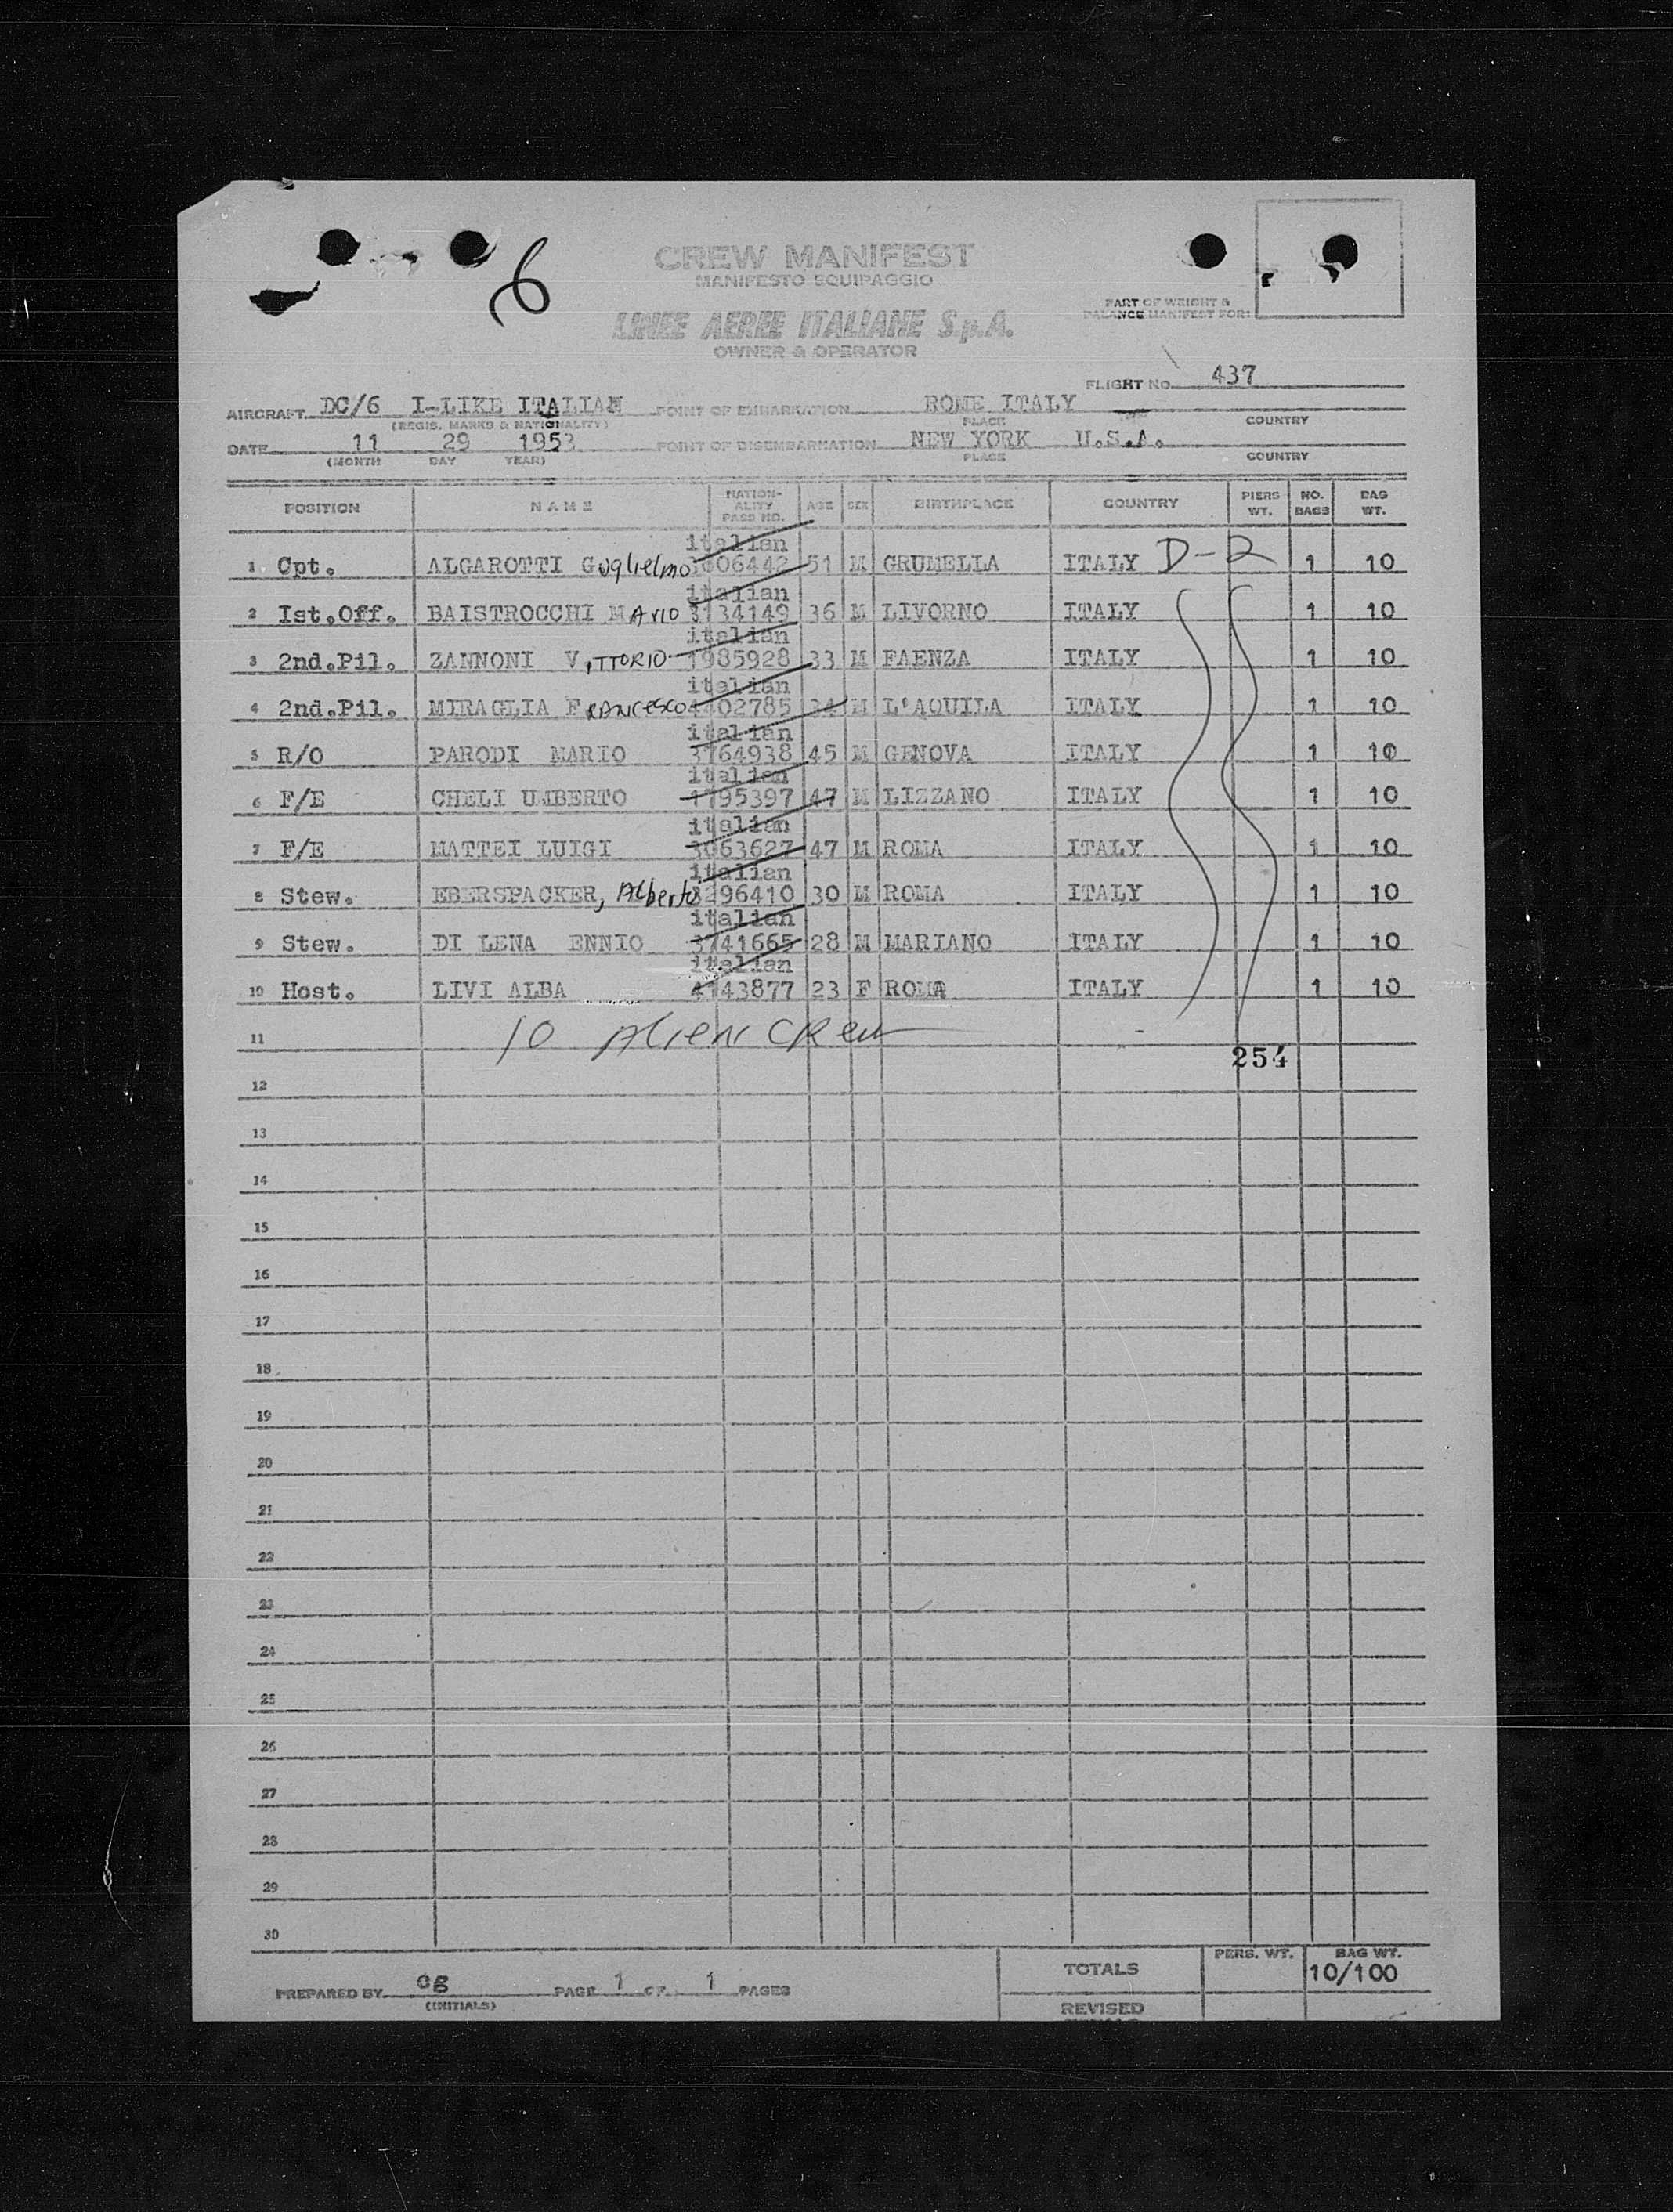 6
CREW MANIFEST
MANIFESTO EQUIPAGGIO
LINEE AEREE ITALIANE S.p.A.
OWNER & OPERATOR
PART OF WEIGHT &
BALANCE MANIFEST FOR:
FLIGHT No. 437
AIRCRAFT DC/6 I-LIKE ITALIAN POINT OF EMBARKATION ROME ITALY
(REGIS. MARKS & NATIONALITY) PLACE COUNTRY
DATE 11 29 1953 POINT OF DISEMBARKATION NEW YORK U.S.A.
(MONTH DAY YEAR) PLACE COUNTRY
POSITION NAME NATION-ALITY PASS NO. AGE SEX BIRTHPLACE COUNTRY PIERS WT. NO. BAGS BAG WT.
italian
1 Cpt. ALGAROTTI Guglielmo 3606442 51 M GRUMELLA ITALY D-2 1 10
italian
2 Ist.Off. BAISTROCCHI MARIO 3134149 36 M LIVORNO ITALY 1 10
italian
3 2nd.Pil. ZANNONI VITTORIO 1985928 33 M FAENZA ITALY 1 10
italian
4 2nd.Pil. MIRAGLIA FRANCESCO 4402785 34 M L'AQUILA ITALY 1 10
italian
5 R/O PARODI MARIO 3764938 45 M GENOVA ITALY 1 10
italian
6 F/E CHELI UMBERTO 1795397 47 M LIZZANO ITALY 1 10
italian
7 F/E MATTEI LUIGI 3063627 47 M ROMA ITALY 1 10
italian
8 Stew. EBERSPACKER, Alberto 3296410 30 M ROMA ITALY 1 10
italian
9 Stew. DI LENA ENNIO 3741665 28 M MARIANO ITALY 1 10
italian
10 Host. LIVI ALBA 4143877 23 F ROMA ITALY 1 10
11 10 Alien CRew
254
12
13
14
15
16
17
18
19
20
21
22
23
24
25
26
27
28
29
30
PERS. WT. BAG WT.
TOTALS 10/100
PREPARED BY cg PAGE 1 OF 1 PAGES
(INITIALS)
REVISED